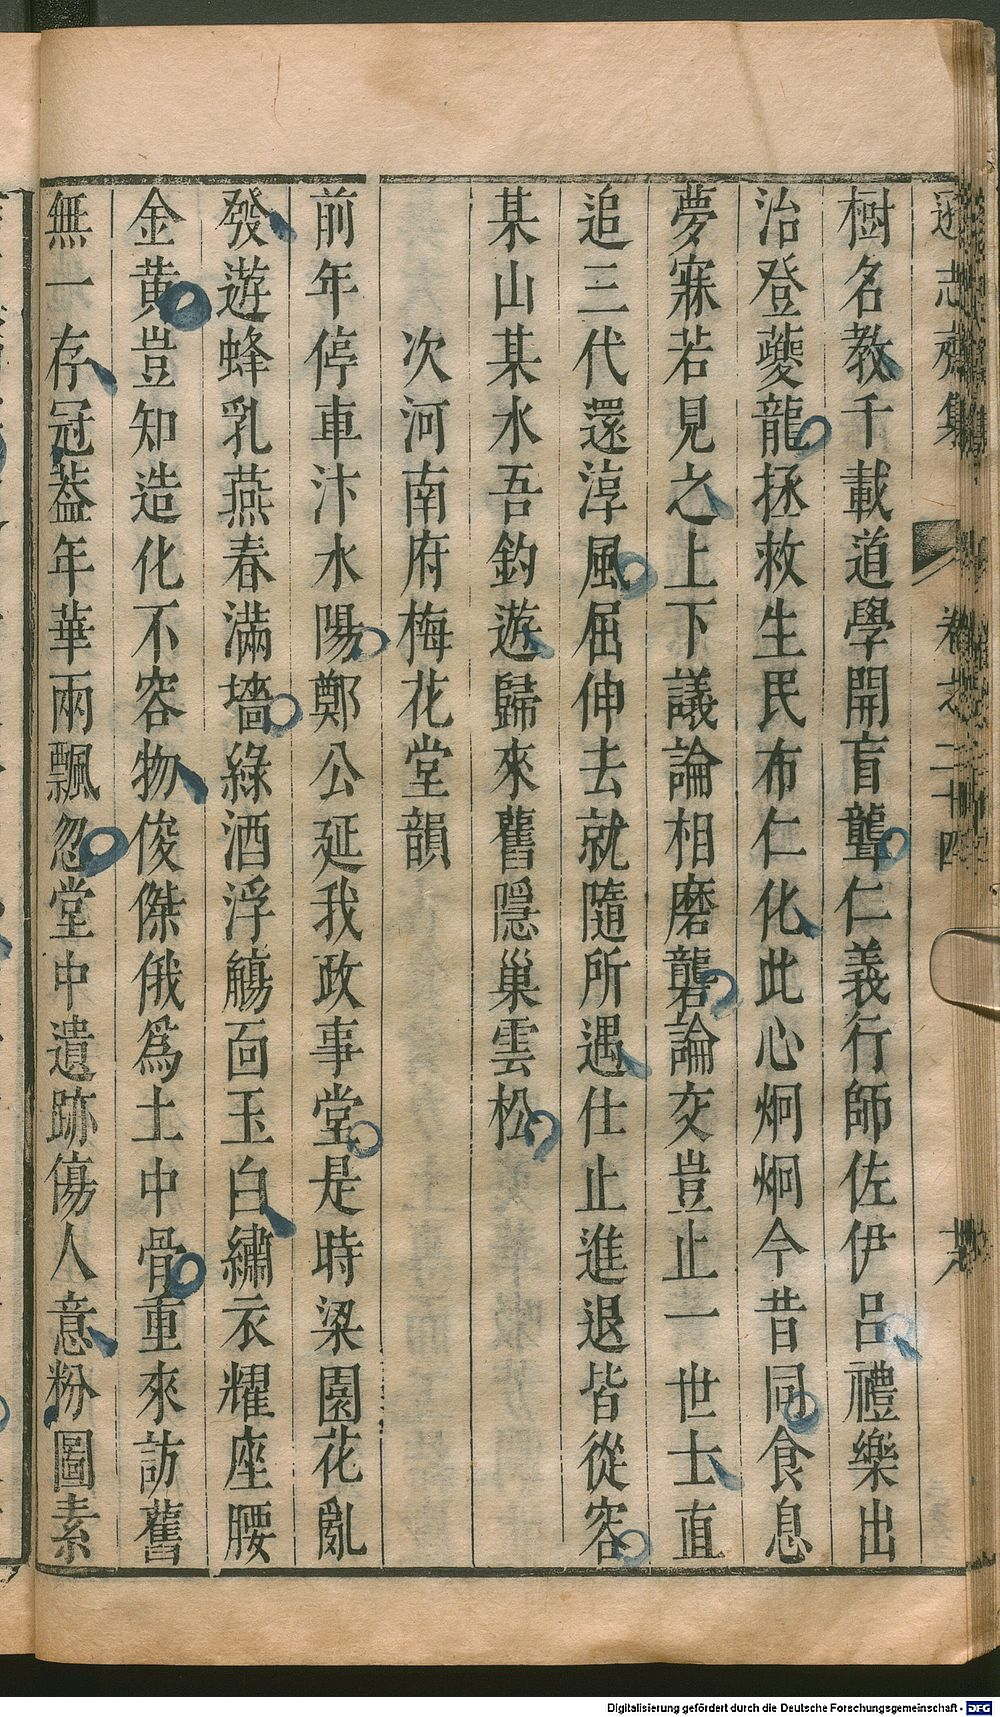 遜志齋集 卷之二十四
樹名教千載道學開盲聾仁義行師佐伊呂禮樂出
治登夔龍拯救生民布仁化此心炯炯今昔同食息
夢寐若見之上下議論相磨礱論交豈止一世士直
追三代還淳風屈伸去就隨所遇仕止進退皆從容
某山某水吾釣遊歸來舊隱巢雲松
次河南府梅花堂韻
前年停車汴水陽鄭公延我政事堂是時梁園花亂
發遊蜂乳燕春滿墻綠酒浮觴面玉白繡衣耀座腰
金黃豈知造化不容物俊傑俄為土中骨重來訪舊
無一存冠葢年華兩飄忽堂中遺跡傷人意粉圖素
Digitalisierung gefördert durch die Deutsche Forschungsgemeinschaft - DFG